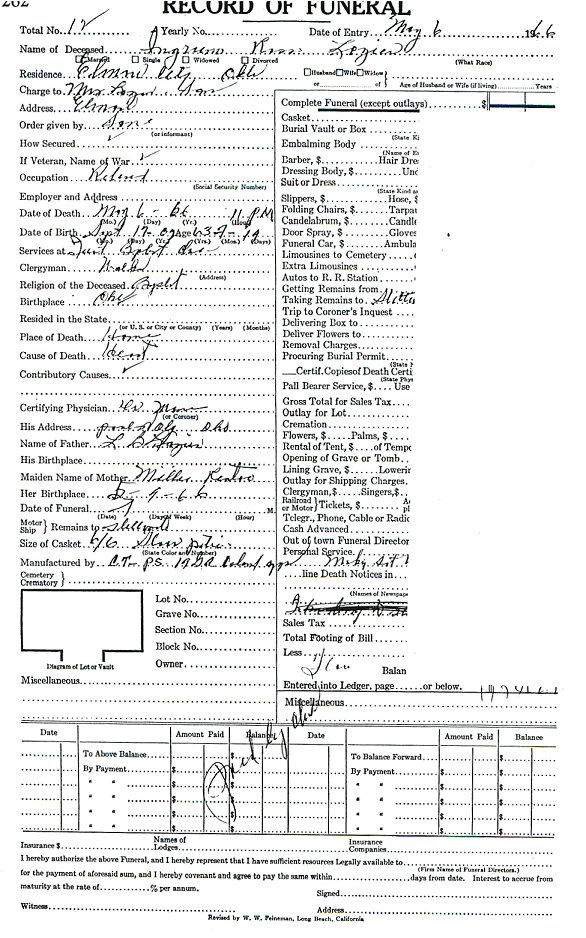 RECORD OF FUNERAL
Total No. 12 Yearly No. Date of Entry May 6 1966
Name of Deceased Ross Lozier
Married Single Widowed Divorced (What Race)
Residence City Okla Husband Wife Widow
or of Age of Husband or Wife (if living) Years
Charge to Mrs Son
Address
Order given by Son
(or informant)
How Secured
If Veteran, Name of War
Occupation Retired
(Social Security Number)
Employer and Address
Date of Death May 6 - 66 11 PM
(Mo.) (Day) (Yr.) (Hour)
Date of Birth Sept 17 - 02 Age 63-7-19
(Mo.) (Day) (Yr.) Yrs. (Mos.) (Days)
Services at First Bapt
Clergyman
(Address)
Religion of the Deceased Baptist
Birthplace Okla
Resided in the State
(or U. S. or City or County) (Years) (Months)
Place of Death Home
Cause of Death Heart
Contributory Causes
Certifying Physician Dr.
(or Coroner)
His Address Okla
Name of Father L B Lozier
His Birthplace
Maiden Name of Mother Millie
Her Birthplace 5-9-66
Date of Funeral
(Date) (Day of Week) (Hour) M.
Motor Ship } Remains to Stillwell
Size of Casket 6/6 Silver
(State Color and Number)
Manufactured by
Cemetery Crematory }
Lot No.
Grave No.
Section No.
Block No.
Owner
Diagram of Lot or Vault
Miscellaneous
Complete Funeral (except outlays) $
Casket
Burial Vault or Box
(State K
Embalming Body
(Name of E
Barber, $ Hair Dre
Dressing Body, $ Und
Suit or Dress
(State Kind a
Slippers, $ Hose, $
Folding Chairs, $ Tarpau
Candelabrum, $ Candle
Door Spray, $ Gloves
Funeral Car, $ Ambula
Limousines to Cemetery
Extra Limousines
Autos to R. R. Station
Getting Remains from
Taking Remains to
Trip to Coroner's Inquest
Delivering Box to
Deliver Flowers to
Removal Charges
Procuring Burial Permit
(State N
Certif. Copies of Death Certi
(State Phys
Pall Bearer Service, $ Use
Gross Total for Sales Tax
Outlay for Lot
Cremation
Flowers, $ Palms, $
Rental of Tent, $ of Tempo
Opening of Grave or Tomb
Lining Grave, $ Lowerin
Outlay for Shipping Charges
Clergyman, $ Singers, $
Railroad or Motor } Tickets, $
Telegr., Phone, Cable or Radio
Cash Advanced
Out of town Funeral Director
Personal Service
line Death Notices in
(Names of Newspape
Sales Tax
Total Footing of Bill
Less
Balan
Entered into Ledger, page or below.
Miscellaneous
Date Amount Paid Balance Date Amount Paid Balance
To Above Balance $ To Balance Forward $
By Payment $ By Payment $
" " $ " " $
" " $ " " $
" " $ " " $
" " $ " " $
Insurance $ Names of Lodges Insurance Companies
I hereby authorize the above Funeral, and I hereby represent that I have sufficient resources Legally available to
(First Name of Funeral Directors.)
for the payment of aforesaid sum, and I hereby covenant and agree to pay the same within days from date. Interest to accrue from
maturity at the rate of % per annum. Signed
Witness Address
Revised by W. W. Feineman, Long Beach, California